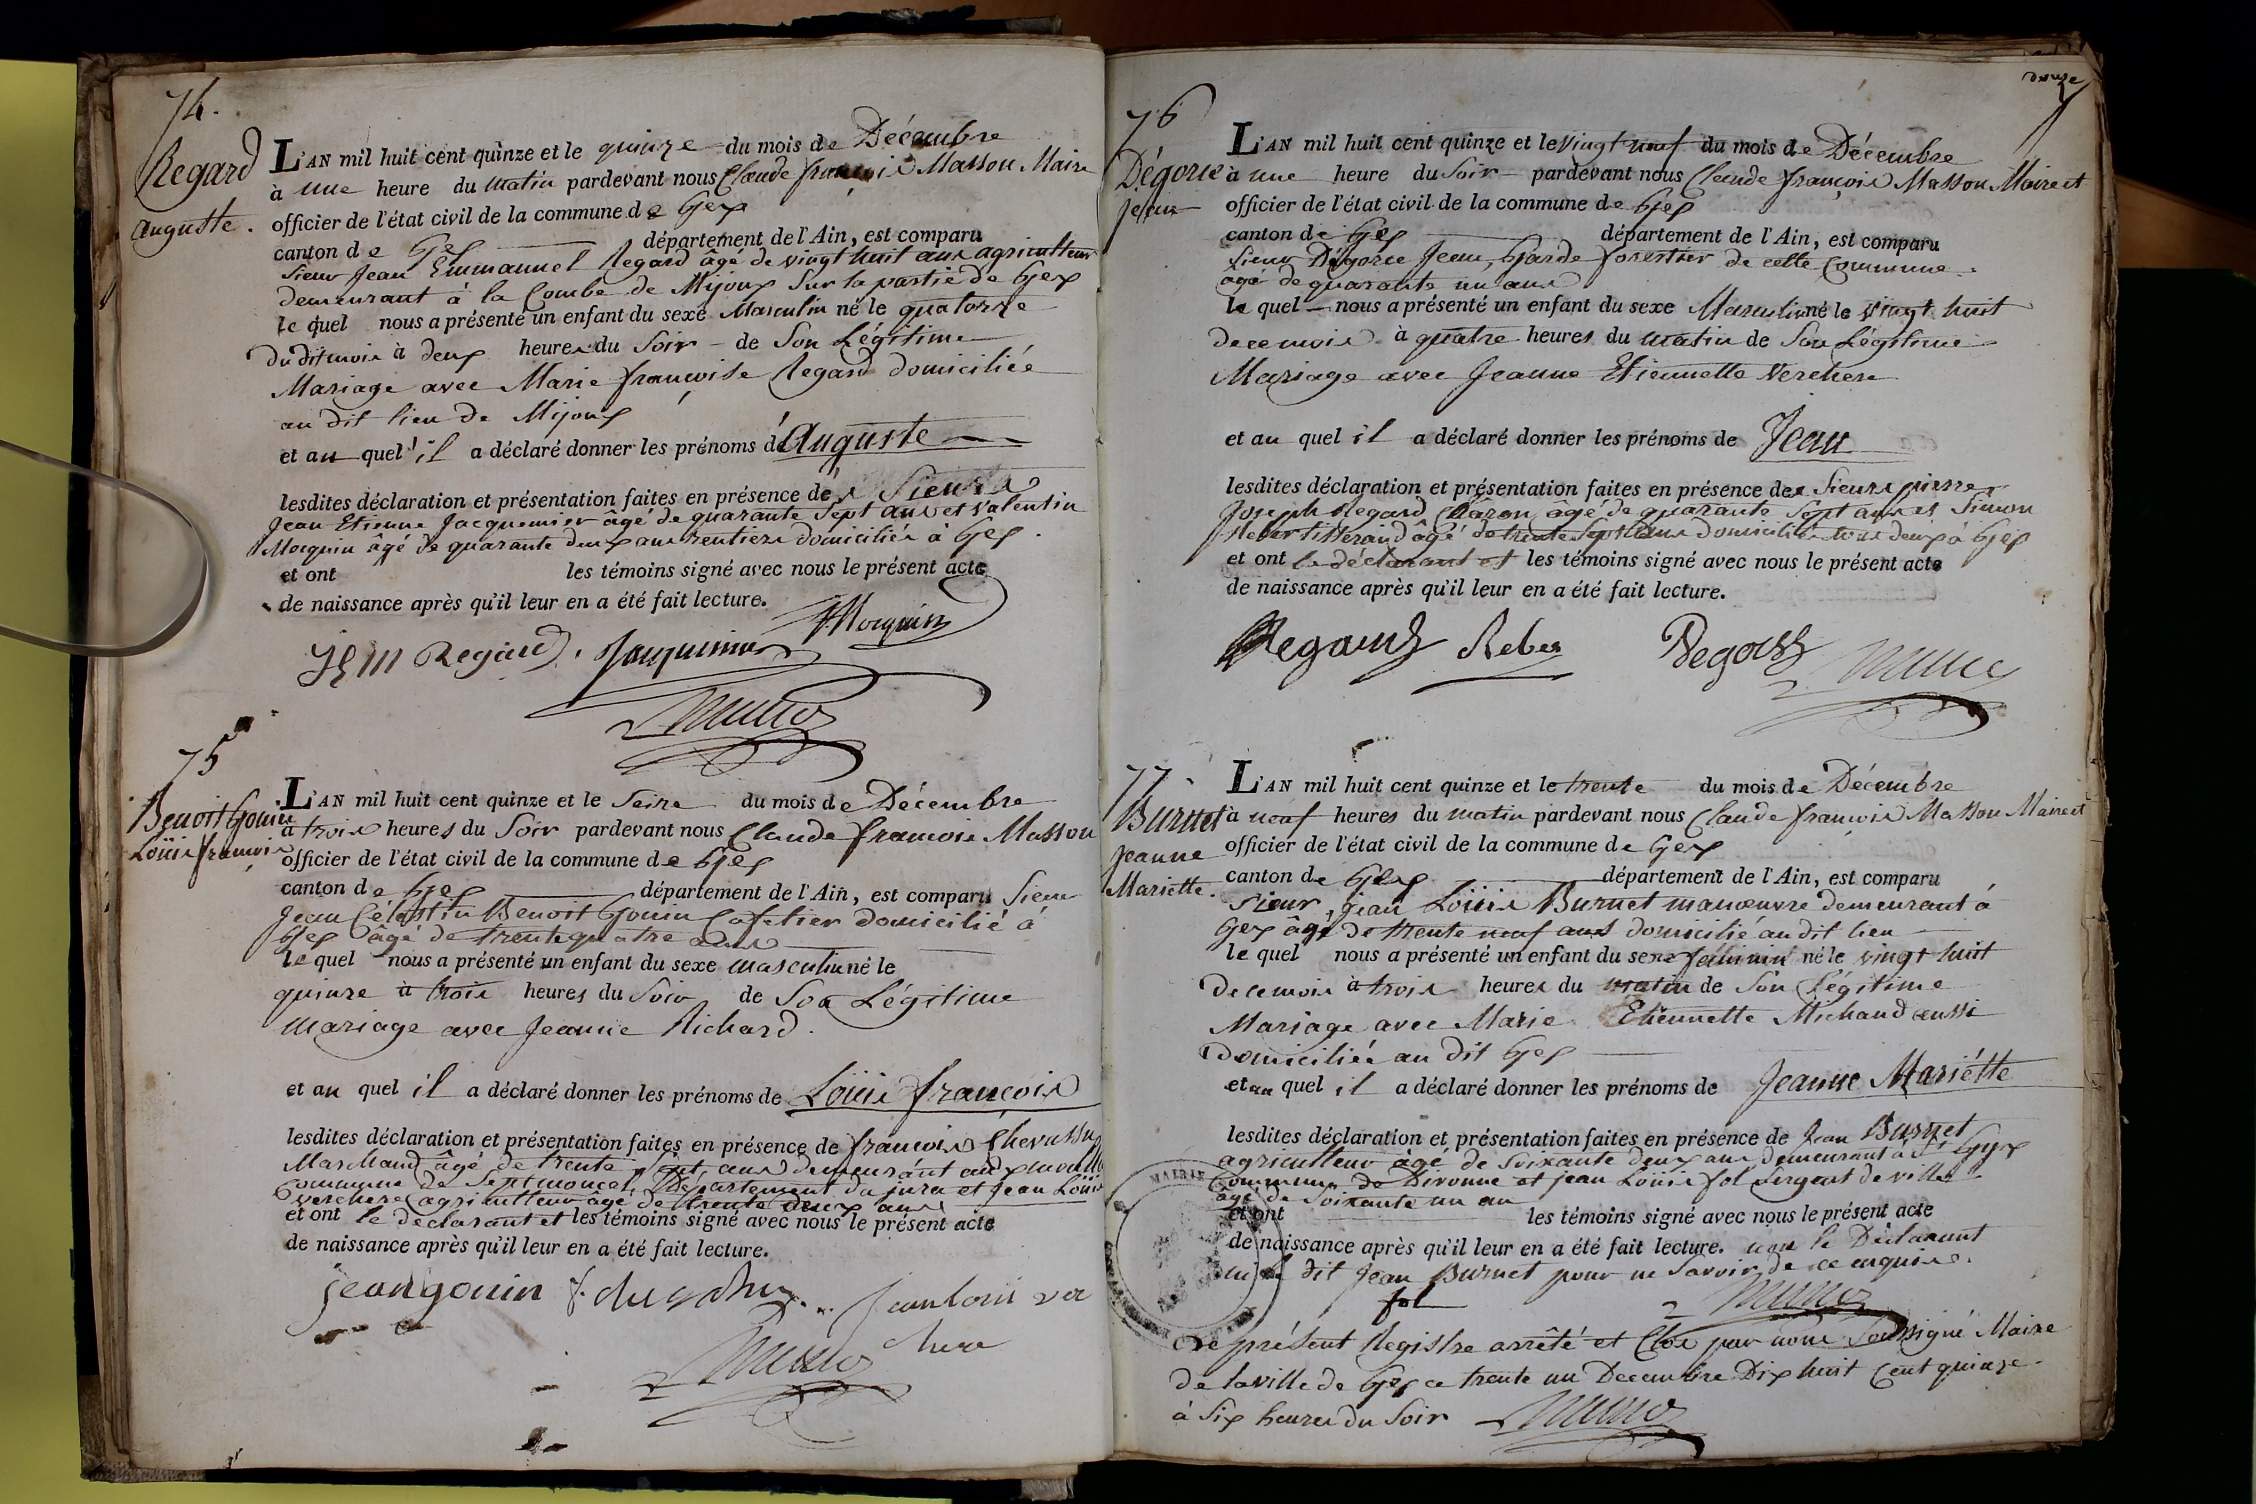 74.
Regard
Auguste.
L'AN mil huit cent quinze et le quinze du mois de Décembre
à une heure du matin pardevant nous Claude françois Masson Maire
officier de l'état civil de la commune de Gex
canton de Gex département de l'Ain, est comparu
Sieur Jean Emmanuel Regard âgé de vingt huit ans agriculteur
demeurant à la Combe de Mijoux Sur la partie de Gex
le quel nous a présenté un enfant du sexe Masculin né le quatorze
du dit mois à deux heures du Soir de Son Légitime
Mariage avec Marie françoise Regard domiciliée
au dit lieu de Mijoux
et au quel il a déclaré donner les prénoms de Auguste
lesdites déclaration et présentation faites en présence des Sieurs
Jean Etienne Jacquemier âgé de quarante Sept ans et Valentin
Moquin âgé de quarante deux ans rentiers domiciliés à Gex.
et ont les témoins signé avec nous le présent acte
de naissance après qu'il leur en a été fait lecture.
Regard Jacquemier Moquin
75
Benoit Gouin
Loüis françois
L'AN mil huit cent quinze et le Seize du mois de Décembre
à trois heures du Soir pardevant nous Claude françois Masson
officier de l'état civil de la commune de Gex
canton de Gex département de l'Ain, est comparu Sieur
Jean Célestin Benoit Gouin Cafetier domicilié à
Gex âgé de trente quatre ans
le quel nous a présenté un enfant du sexe masculin né le
quinze à trois heures du Soir de Son Légitime
mariage avec Jeanne Richard.
et au quel il a déclaré donner les prénoms de Loüis françois
lesdites déclaration et présentation faites en présence de françois Chevassu
Marchand âgé de trente Sept ans demeurant aux
Commune de Septmoncel, Département du jura et Jean Loüis
Verchere agriculteur âgé de trente deux ans
et ont le déclarant et les témoins signé avec nous le présent acte
de naissance après qu'il leur en a été fait lecture.
jean gouin jean Louis ver
chere
douze
76
Dégorce
Jean
L'AN mil huit cent quinze et le vingt neuf du mois de Décembre
à une heure du Soir pardevant nous Claude françois Masson Maire et
officier de l'état civil de la commune de Gex
canton de Gex département de l'Ain, est comparu
Sieur Dégorce Jean, Garde forestier de cette Commune
âgé de quarante un ans
le quel nous a présenté un enfant du sexe Masculin né le vingt huit
de ce mois à quatre heures du matin de Son Légitime
Mariage avec Jeanne Etiennette Verchere
et au quel il a déclaré donner les prénoms de Jean
lesdites déclaration et présentation faites en présence des Sieurs pierre
Joseph Regard âgé de quarante Sept ans et Simon
Reber tisserand âgé de trente Sept ans domiciliés tous deux à Gex
et ont le déclarant et les témoins signé avec nous le présent acte
de naissance après qu'il leur en a été fait lecture.
Regard Reber Degorce
77
Burnet
Jeanne
Mariette.
L'AN mil huit cent quinze et le trente du mois de Décembre
à neuf heures du matin pardevant nous Claude françois Masson Maire et
officier de l'état civil de la commune de Gex
canton de Gex département de l'Ain, est comparu
Sieur jean Loüis Burnet manœuvre demeurant à
Gex âgé de trente neuf ans domicilié au dit lieu
le quel nous a présenté un enfant du sexe féminin né le vingt huit
de ce mois à trois heures du matin de Son Légitime
Mariage avec Marie Etiennette Michaud aussi
Domiciliée au dit Gex
et au quel il a déclaré donner les prénoms de Jeanne Mariétte
lesdites déclaration et présentation faites en présence de Jean Burnet
agriculteur âgé de Soixante deux ans demeurant à St Gix
Commune de Divonne et jean Loüis fol Sergent de ville
âgé de Soixante un an
et ont les témoins signé avec nous le présent acte
de naissance après qu'il leur en a été fait lecture. non le Déclarant
ni le dit Jean Burnet pour ne Savoir de ce enquis.
fol
MAIRIE
Le présent Registre arrêté et Clos par nous Soussigné Maire
de la ville de Gex ce trente un Decembre Dix huit Cent quinze.
à Six heures du Soir